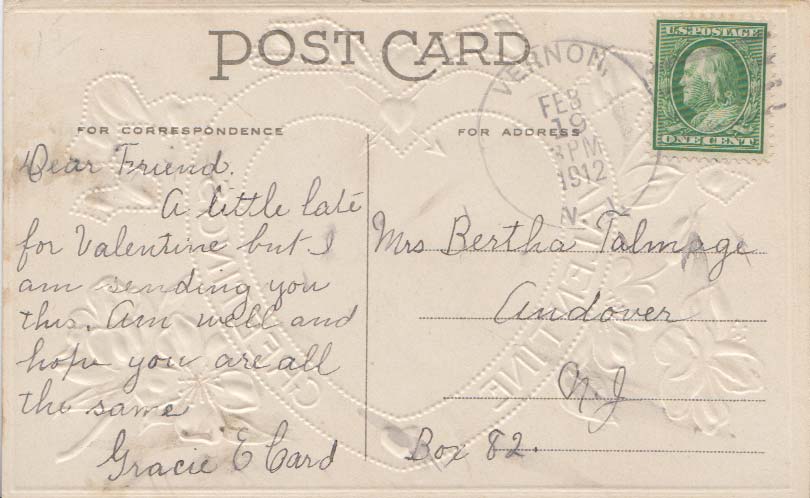 POST CARD
FOR CORRESPONDENCE
FOR ADDRESS
U.S. POSTAGE
ONE CENT
VERNON,
FEB
19
3 PM
1912
N.
Dear Friend.
A little late
for Valentine but I
am sending you
this. Am well and
hope you are all
the same
Gracie E Card
Mrs Bertha Talmage
Andover
N.J
Box 82.
VALENTINE